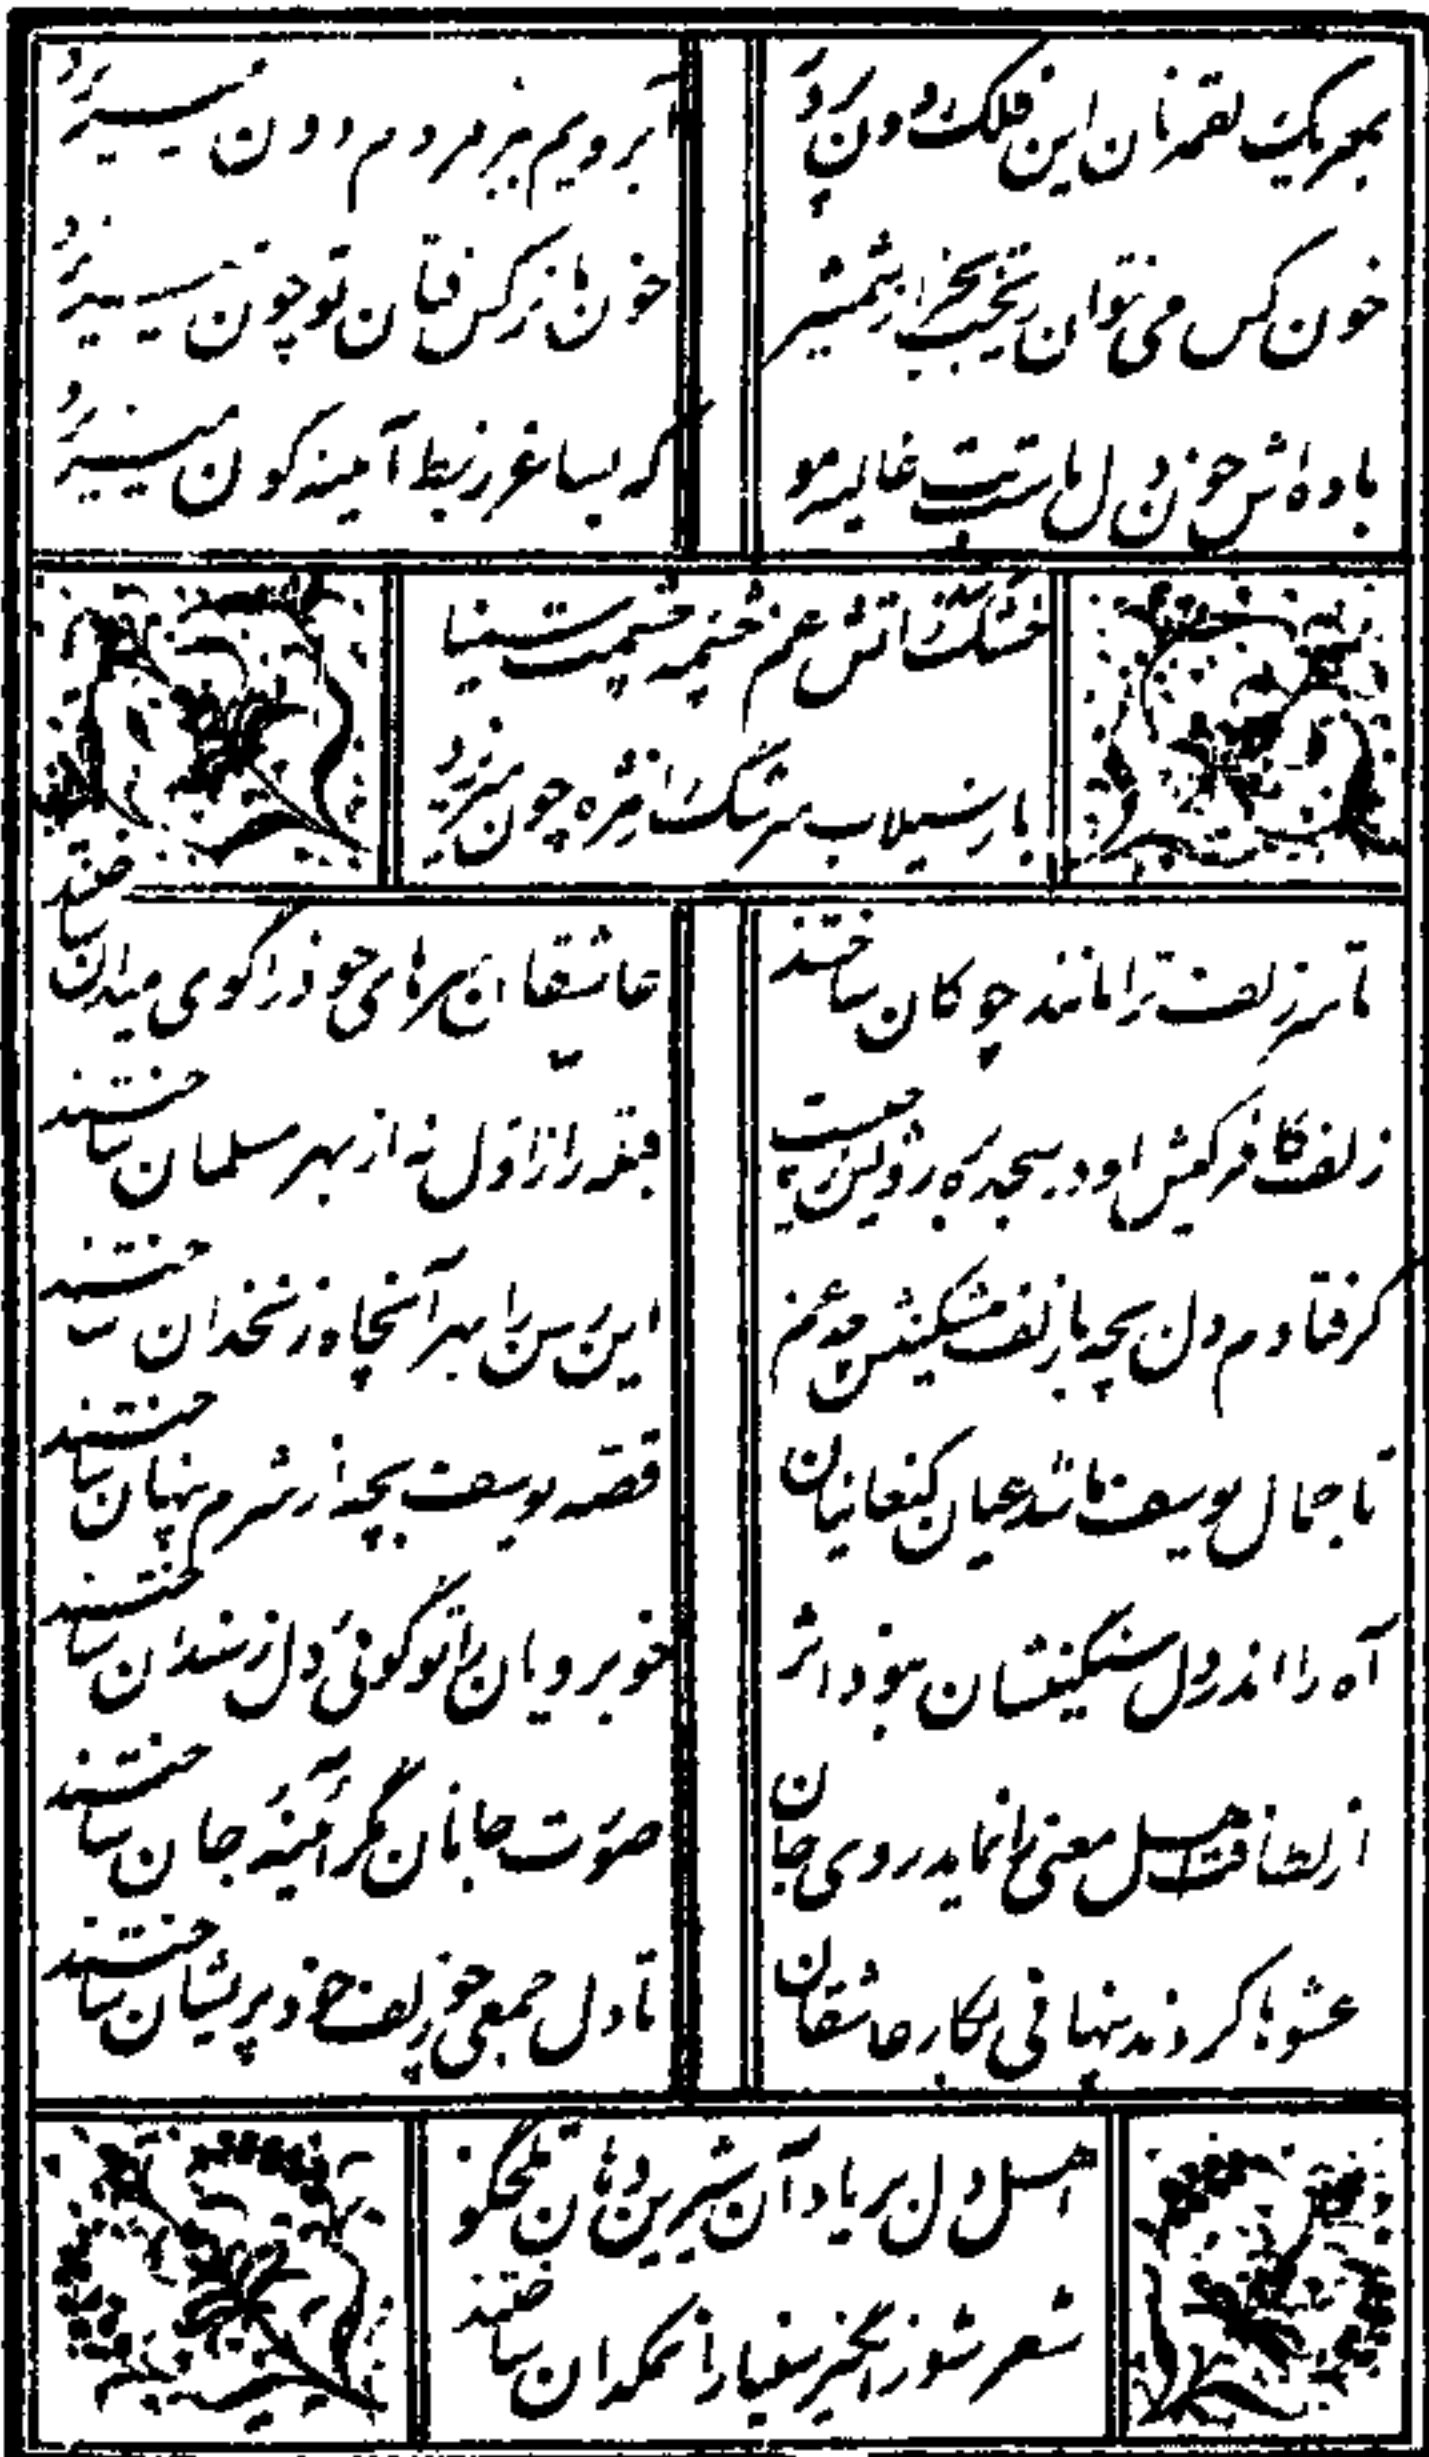 بهر یک لقمه نان این فلک دون پرور
آبرویم ببر مردم دون میریزد
خون کس می نتوان ریخت بجز از شمشیر
خون ما نرگس فتان تو چون میریزد
باده اش خون دل ماست بت غالیه مو
که بساغر ز بط آینه گون میریزد
خشک شد ز اتش غم چشمه چشمت سینا
باز سیلاب سرشک از مژه چون میریزد
تا سر زلف ترا مانند چوکان ساختند
عاشقان سرهای خود را کوی میدان ساختند
زلف کافر کیش او در سجده بر رویش ز چیست
قبله را ز اول نه از بهر مسلمان ساختند
کر فتادم دل بچه با زلف مشکینش چه غم
این رسن را بهر آنچاه زنخدان ساختند
تا جمال یوسف ما شد عیان کنعانیان
قصه یوسف بچه از شرم پنهان ساختند
آه را اندر دل سنکینشان نبود اثر
خوبرویان را تو کوئی دل ز سندان ساختند
از لطافت اهل معنی را نماید روی جان
صورت جانان مکر آئینه جان ساختند
عشوها کردند پنهانی بکار عاشقان
تا دل جمعی چو زلف خود پریشان ساختند
اهل دل بر یاد آن شیرین دهان تلخکو
شعر شورانکیز سینا را نمکدان ساختند